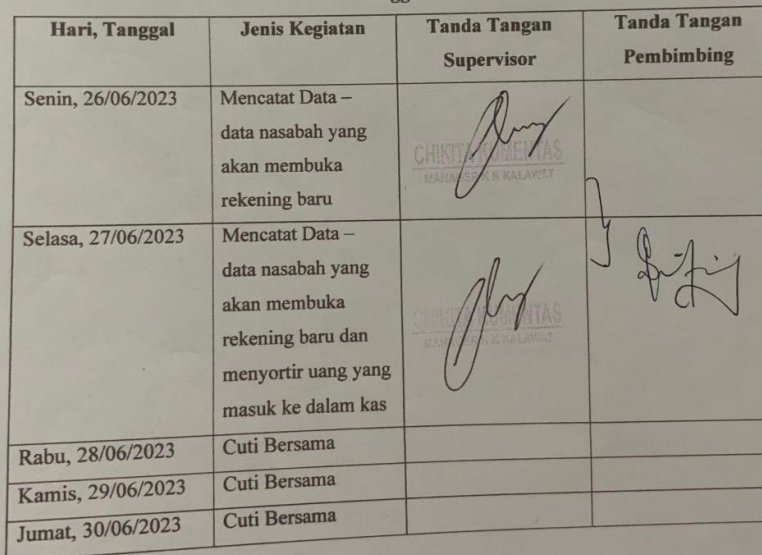 Hari, Tanggal
Jenis Kegiatan
Tanda Tangan
Supervisor
Tanda Tangan
Pembimbing
Senin, 26/06/2023
Mencatat Data –
data nasabah yang
akan membuka
rekening baru
CHIKITA KUMENTAS
MANAGER K K KALAWAT
Selasa, 27/06/2023
Mencatat Data –
data nasabah yang
akan membuka
rekening baru dan
menyortir uang yang
masuk ke dalam kas
CHIKITA KUMENTAS
MANAGER K K KALAWAT
Rabu, 28/06/2023
Cuti Bersama
Kamis, 29/06/2023
Cuti Bersama
Jumat, 30/06/2023
Cuti Bersama